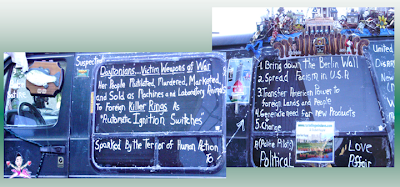 Suspected
Daytonians... Victim Weapons of War
Her People Mutilated, Murdered, Marketed,
and Sold as Machines and Laboratory Animals
To Foreign Killer Rings As
"Automatic Ignition Switches"
Sparked By the Terror of Human Action
To
1. Bring down The Berlin Wall
2. Spread Facism in U.S.A
3. Transfer American Power to
foreign Lands and People
4. Generate need for new Products
5. Change
Political
Love
Affair
United